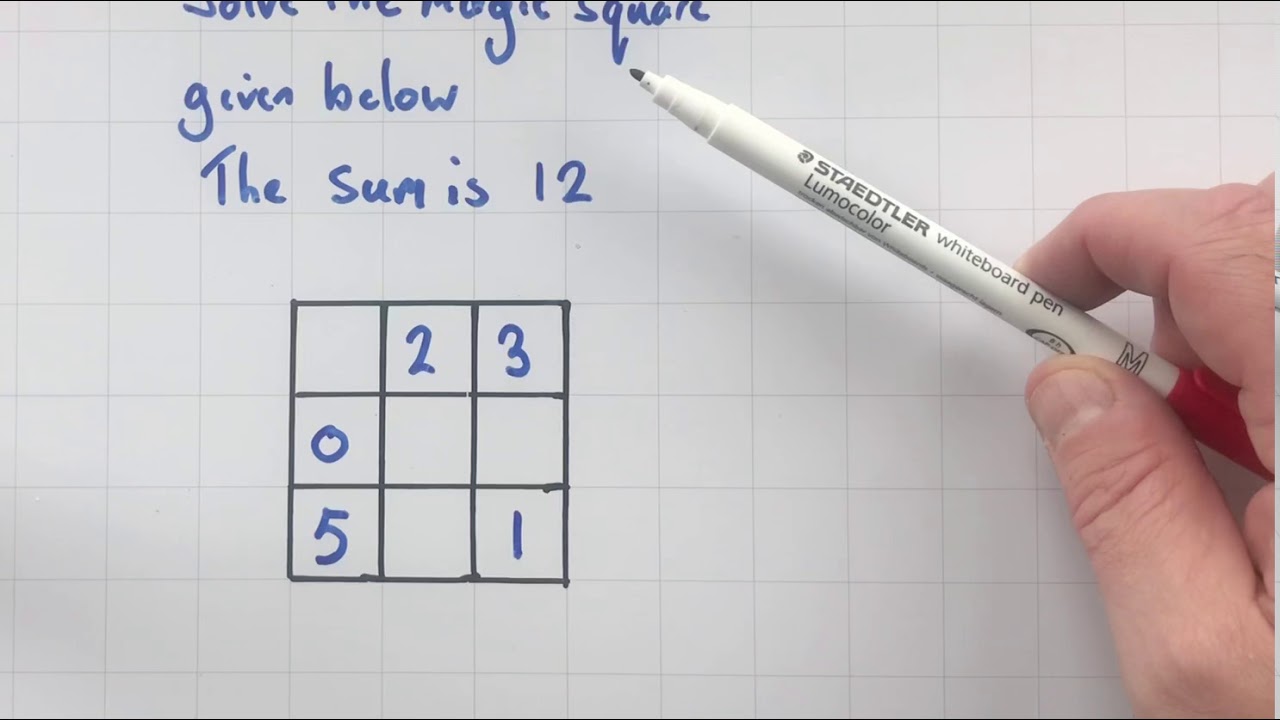 Solve the Magic square
given below
The sum is 12
2 3
0
5 1
STAEDTLER whiteboard pen
Lumocolor
M